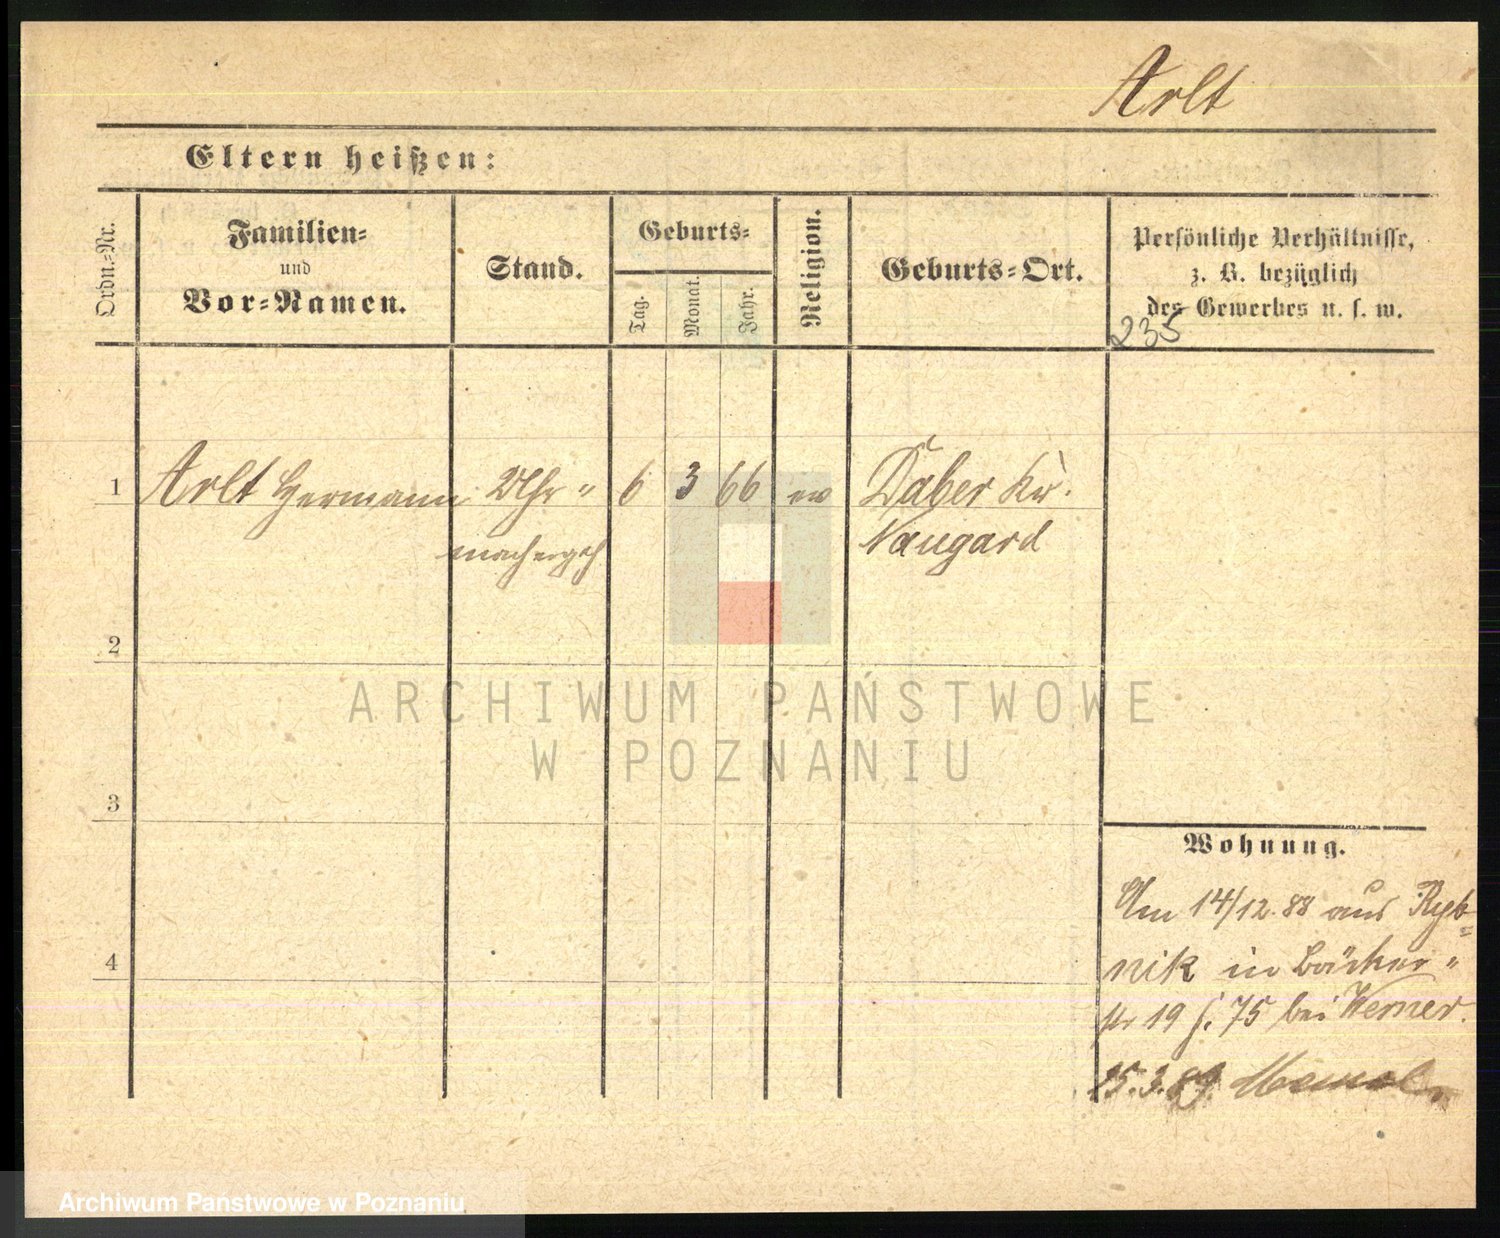 Arlt
Eltern heißen:
Ordn.-Nr.
Familien-
und
Vor-Namen.
Stand.
Geburts-
Tag.
Monat.
Jahr.
Religion.
Geburts-Ort.
Persönliche Verhältnisse,
z. B. bezüglich
des Gewerbes u. s. w.
235
1 Arlt Hermann Uhr- 6 3 66 ev Daber Kr.
machergeh Naugard
2
ARCHIWUM PAŃSTWOWE
W POZNANIU
3
Wohnung.
Am 14/12. 88 aus Ryb-
4
nik in Bäcker-
str 19 f. 75 bei Werner.
15.3.89.
Archiwum Państwowe w Poznaniu